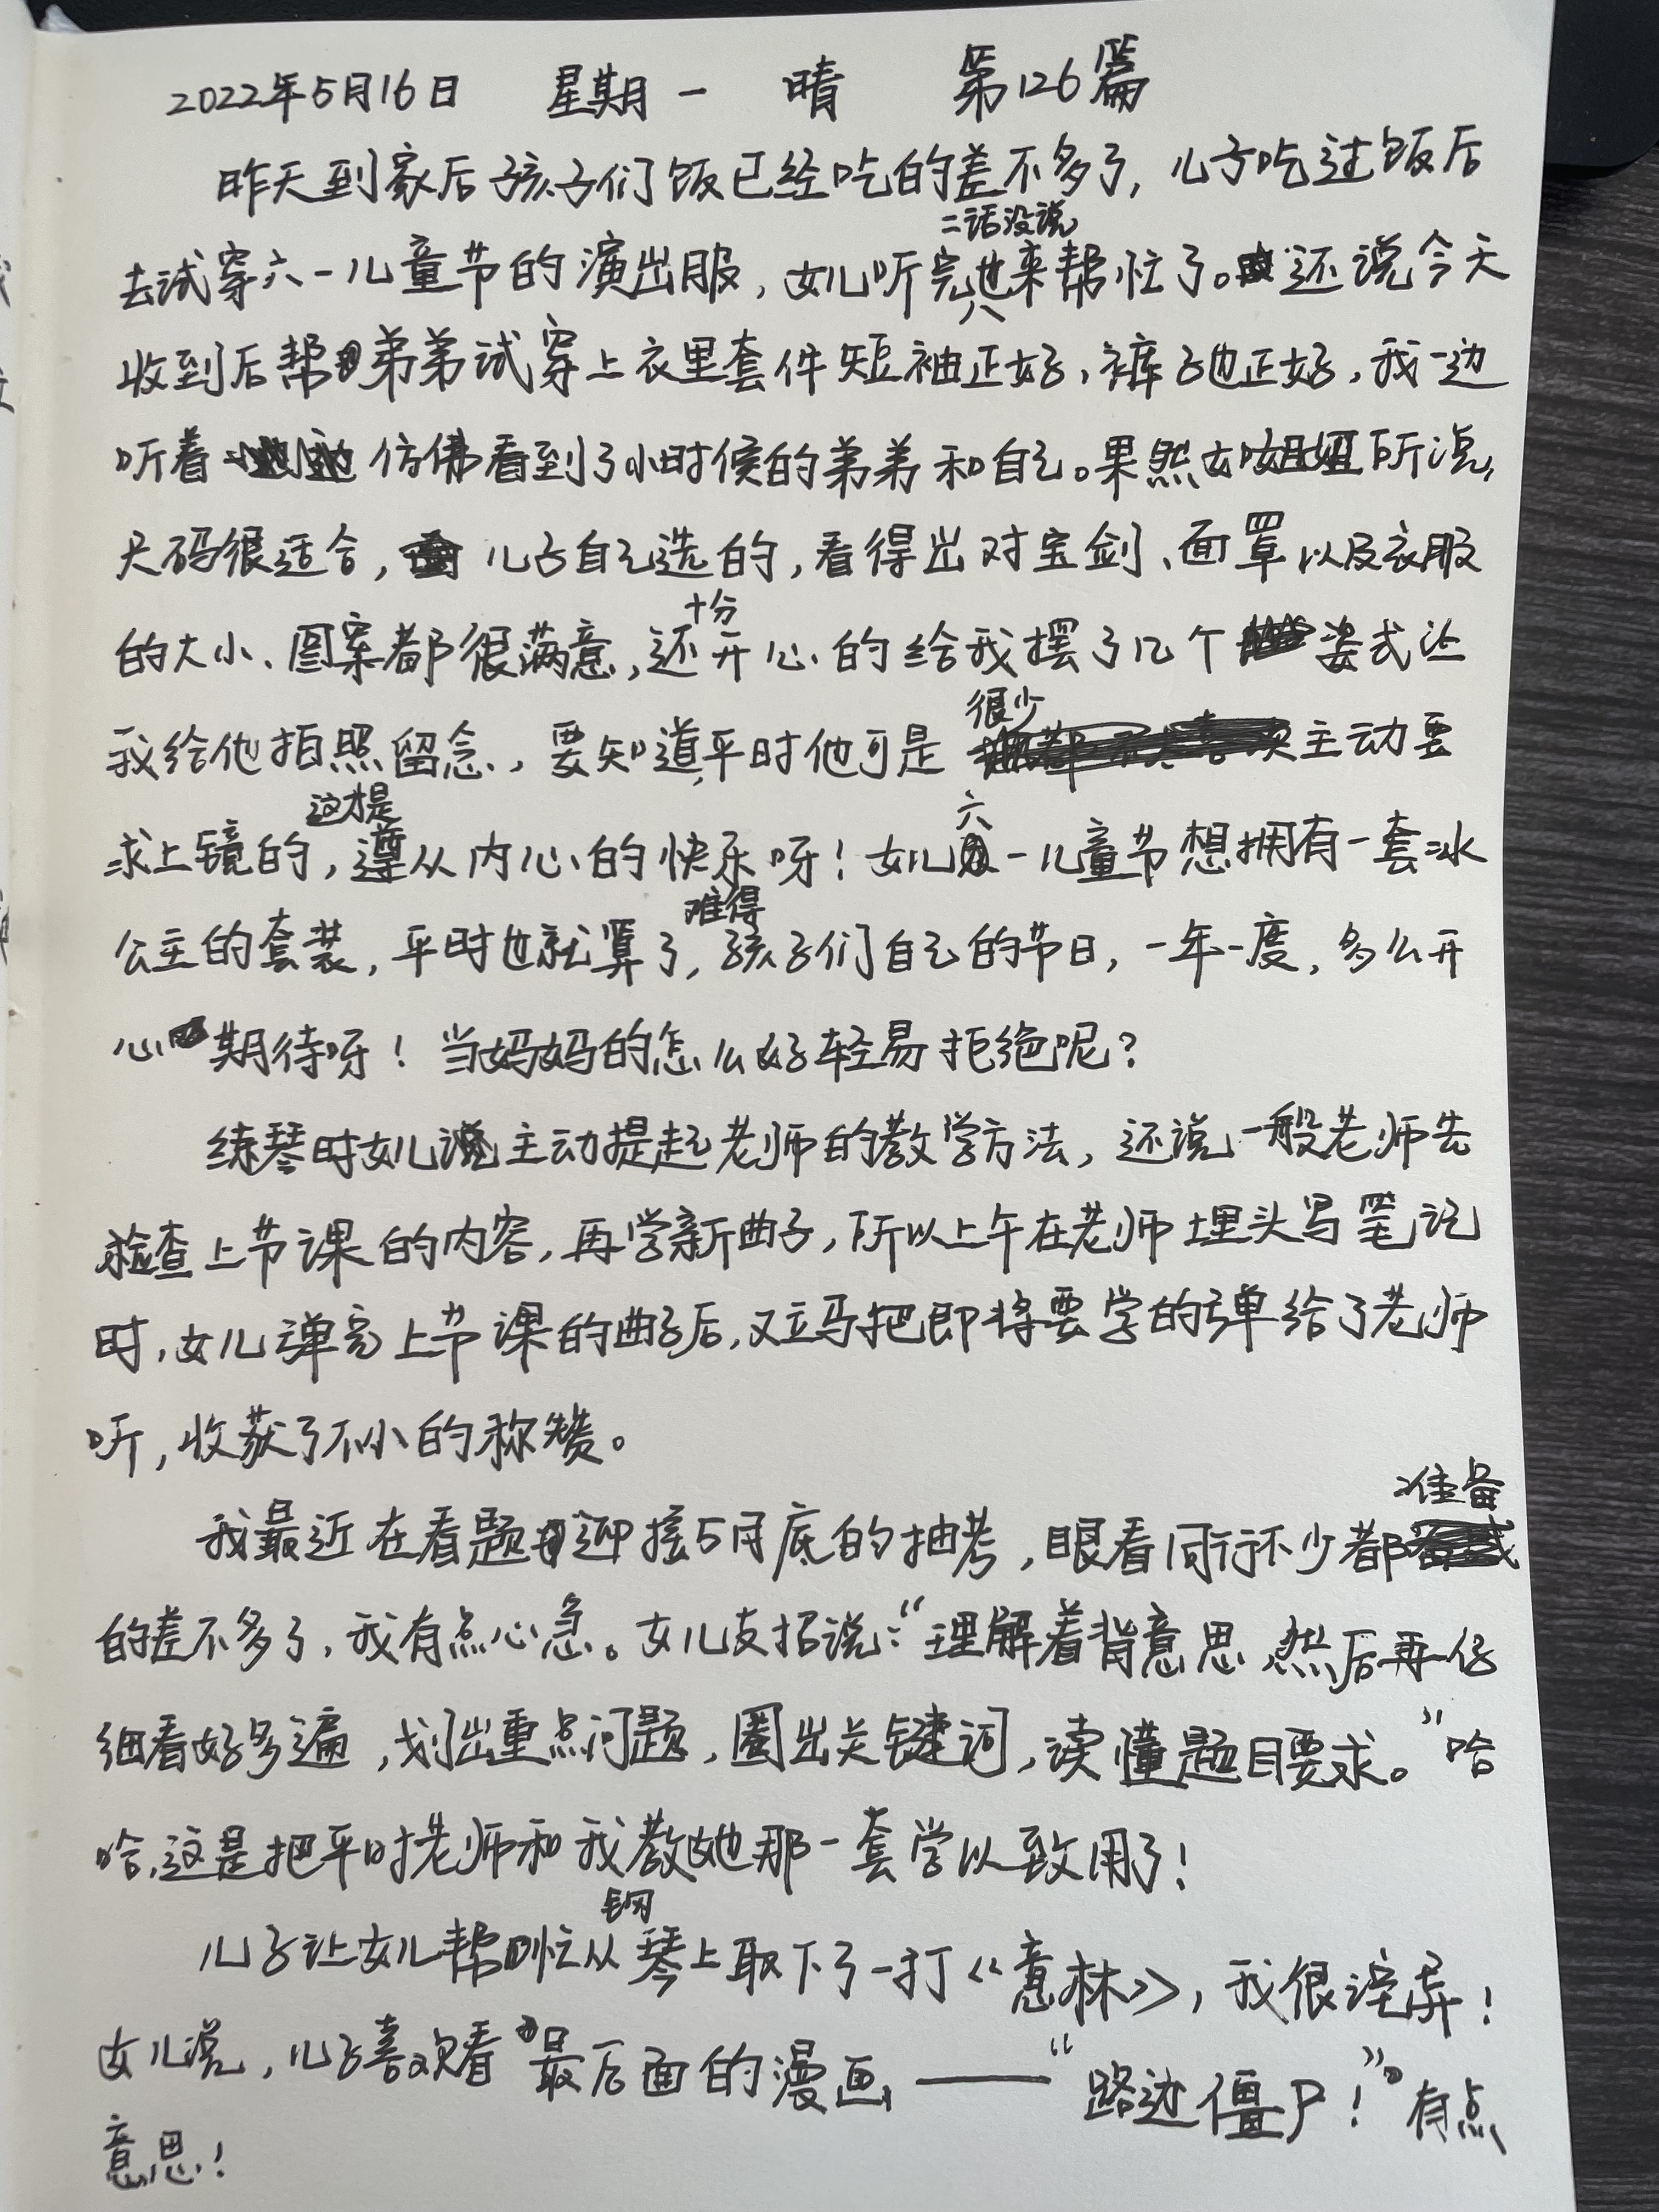 2022年5月16日 星期一 晴 第126篇
昨天到家后孩子们饭已经吃的差不多了，儿子吃过饭后
去试穿六一儿童节的演出服，女儿听完二话没说也来帮忙了。还说今天
收到后帮弟弟试穿上衣里套件短袖正好，裤子也正好，我一边
听着仿佛看到了小时候的弟弟和自己。果然如姐姐所说，
尺码很适合，儿子自己选的，看得出对宝剑、面罩以及衣服
的大小、图案都很满意，还十分开心的给我摆了几个姿式让
我给他拍照留念，要知道，平时他可是很少主动要
求上镜的，这才是遵从内心的快乐呀！女儿六一儿童节想拥有一套冰
公主的套装，平时也就算了，难得孩子们自己的节日，一年一度，多么开
心期待呀！当妈妈的怎么好轻易拒绝呢？
练琴时女儿主动提起老师的教学方法，还说一般老师先
检查上节课的内容，再学新曲子，所以上午在老师埋头写笔记
时，女儿弹完上节课的曲子后，又立马把即将要学的弹给了老师
听，收获了不小的称赞。
我最近在看题迎接5月底的抽考，眼看同行不少都准备
的差不多了，我有点心急。女儿支招说：“理解着背意思，然后再仔
细看好多遍，划出重点问题，圈出关键词，读懂题目要求。”哈
哈，这是把平时老师和我教她那一套学以致用了！
儿子让女儿帮忙从钢琴上取下了一打《意林》，我很诧异！
女儿说，儿子喜欢看最后面的漫画——“路边僵尸！”。有点
意思！